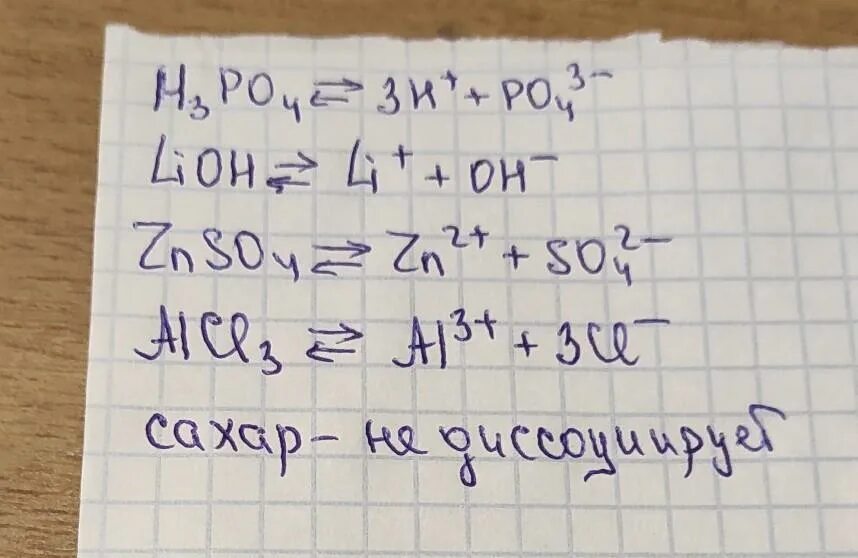 H₃PO₄ ⇄ 3H⁺ + PO₄³⁻
LiOH ⇄ Li⁺ + OH⁻
ZnSO₄ ⇄ Zn²⁺ + SO₄²⁻
AlCl₃ ⇄ Al³⁺ + 3Cl⁻
сахар – не диссоциирует